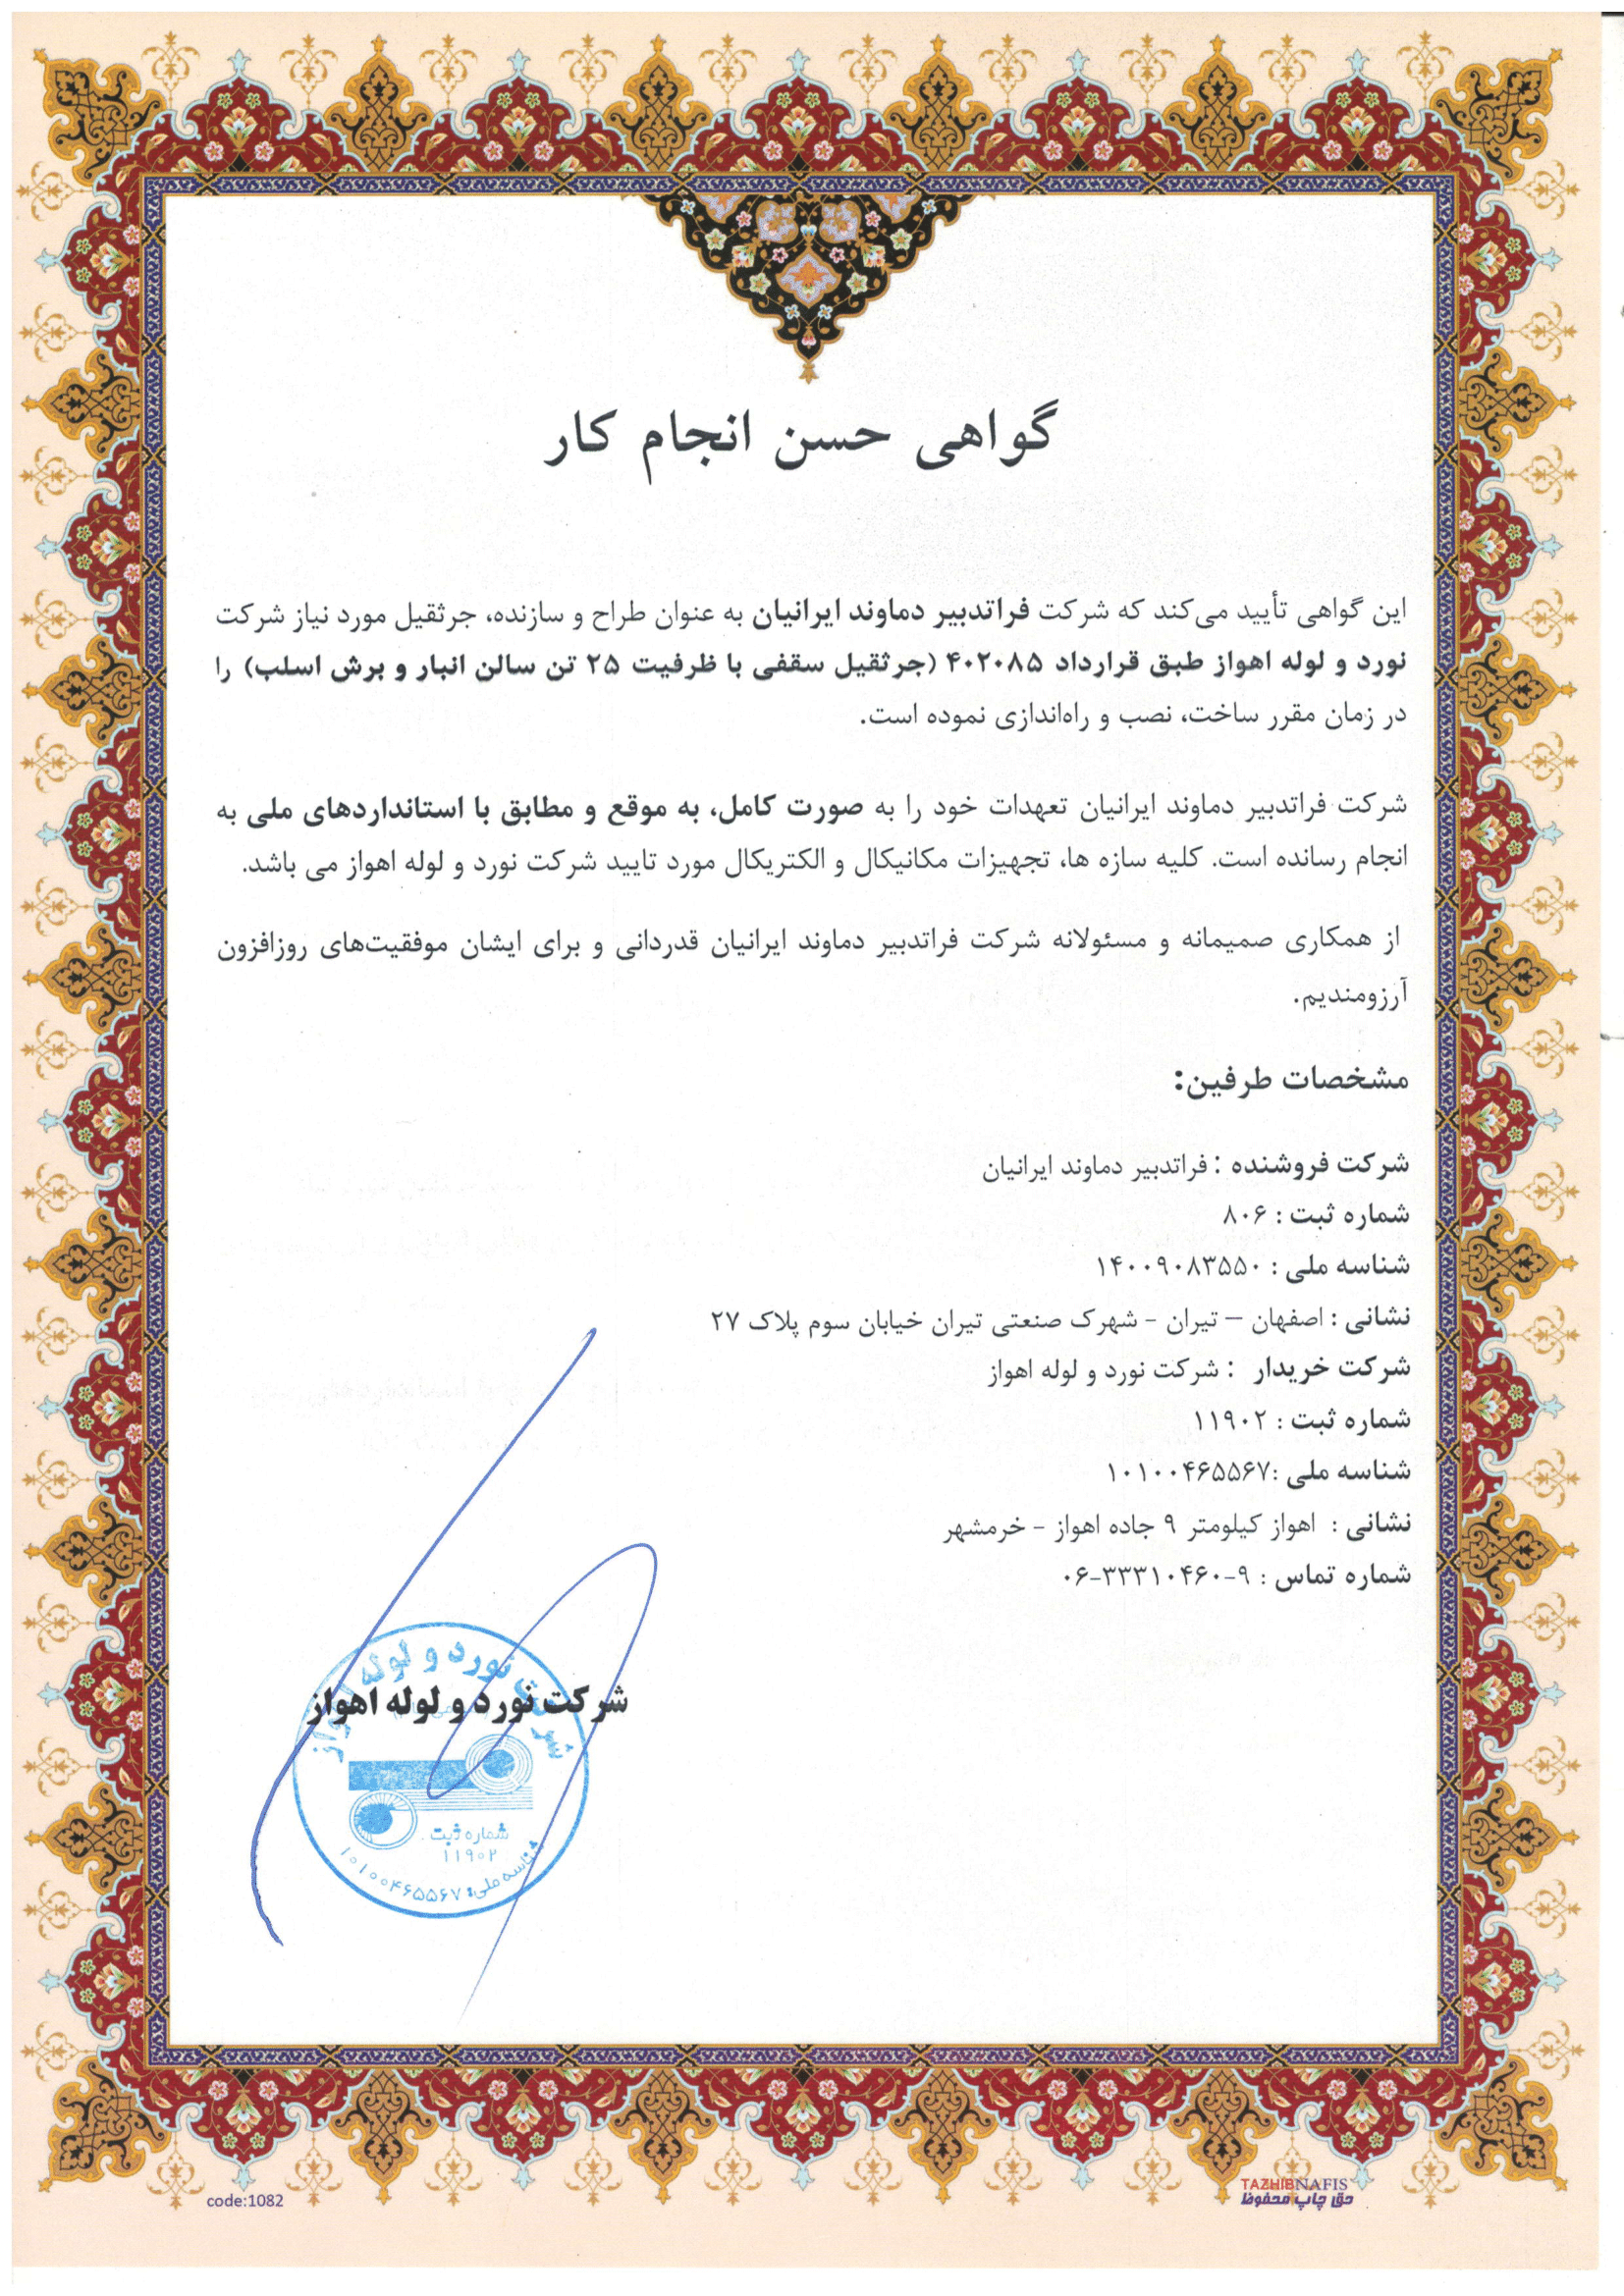 گواهی حسن انجام کار
این گواهی تأیید می‌کند که شرکت فراتدبیر دماوند ایرانیان به عنوان طراح و سازنده، جرثقیل مورد نیاز شرکت
نورد و لوله اهواز طبق قرارداد ۴۰۲۰۸۵ (جرثقیل سقفی با ظرفیت ۲۵ تن سالن انبار و برش اسلب) را
در زمان مقرر ساخت، نصب و راه‌اندازی نموده است.
شرکت فراتدبیر دماوند ایرانیان تعهدات خود را به صورت کامل، به موقع و مطابق با استانداردهای ملی به
انجام رسانده است. کلیه سازه ها، تجهیزات مکانیکال و الکتریکال مورد تایید شرکت نورد و لوله اهواز می باشد.
از همکاری صمیمانه و مسئولانه شرکت فراتدبیر دماوند ایرانیان قدردانی و برای ایشان موفقیت‌های روزافزون
آرزومندیم.
مشخصات طرفین:
شرکت فروشنده : فراتدبیر دماوند ایرانیان
شماره ثبت : ۸۰۶
شناسه ملی : ۱۴۰۰۹۰۸۳۵۵۰
نشانی : اصفهان – تیران - شهرک صنعتی تیران خیابان سوم پلاک ۲۷
شرکت خریدار : شرکت نورد و لوله اهواز
شماره ثبت : ۱۱۹۰۲
شناسه ملی :۱۰۱۰۰۴۶۵۵۶۷
نشانی : اهواز کیلومتر ۹ جاده اهواز - خرمشهر
شماره تماس : ۹-۳۳۳۱۰۴۶۰-۰۶
شرکت نورد و لوله اهواز
شرکت نورد و لوله اهواز
شماره ثبت
۱۱۹۰۲
شناسه ملی: ۱۰۱۰۰۴۶۵۵۶۷
code:1082
TAZHIBNAFIS
حق چاپ محفوظ